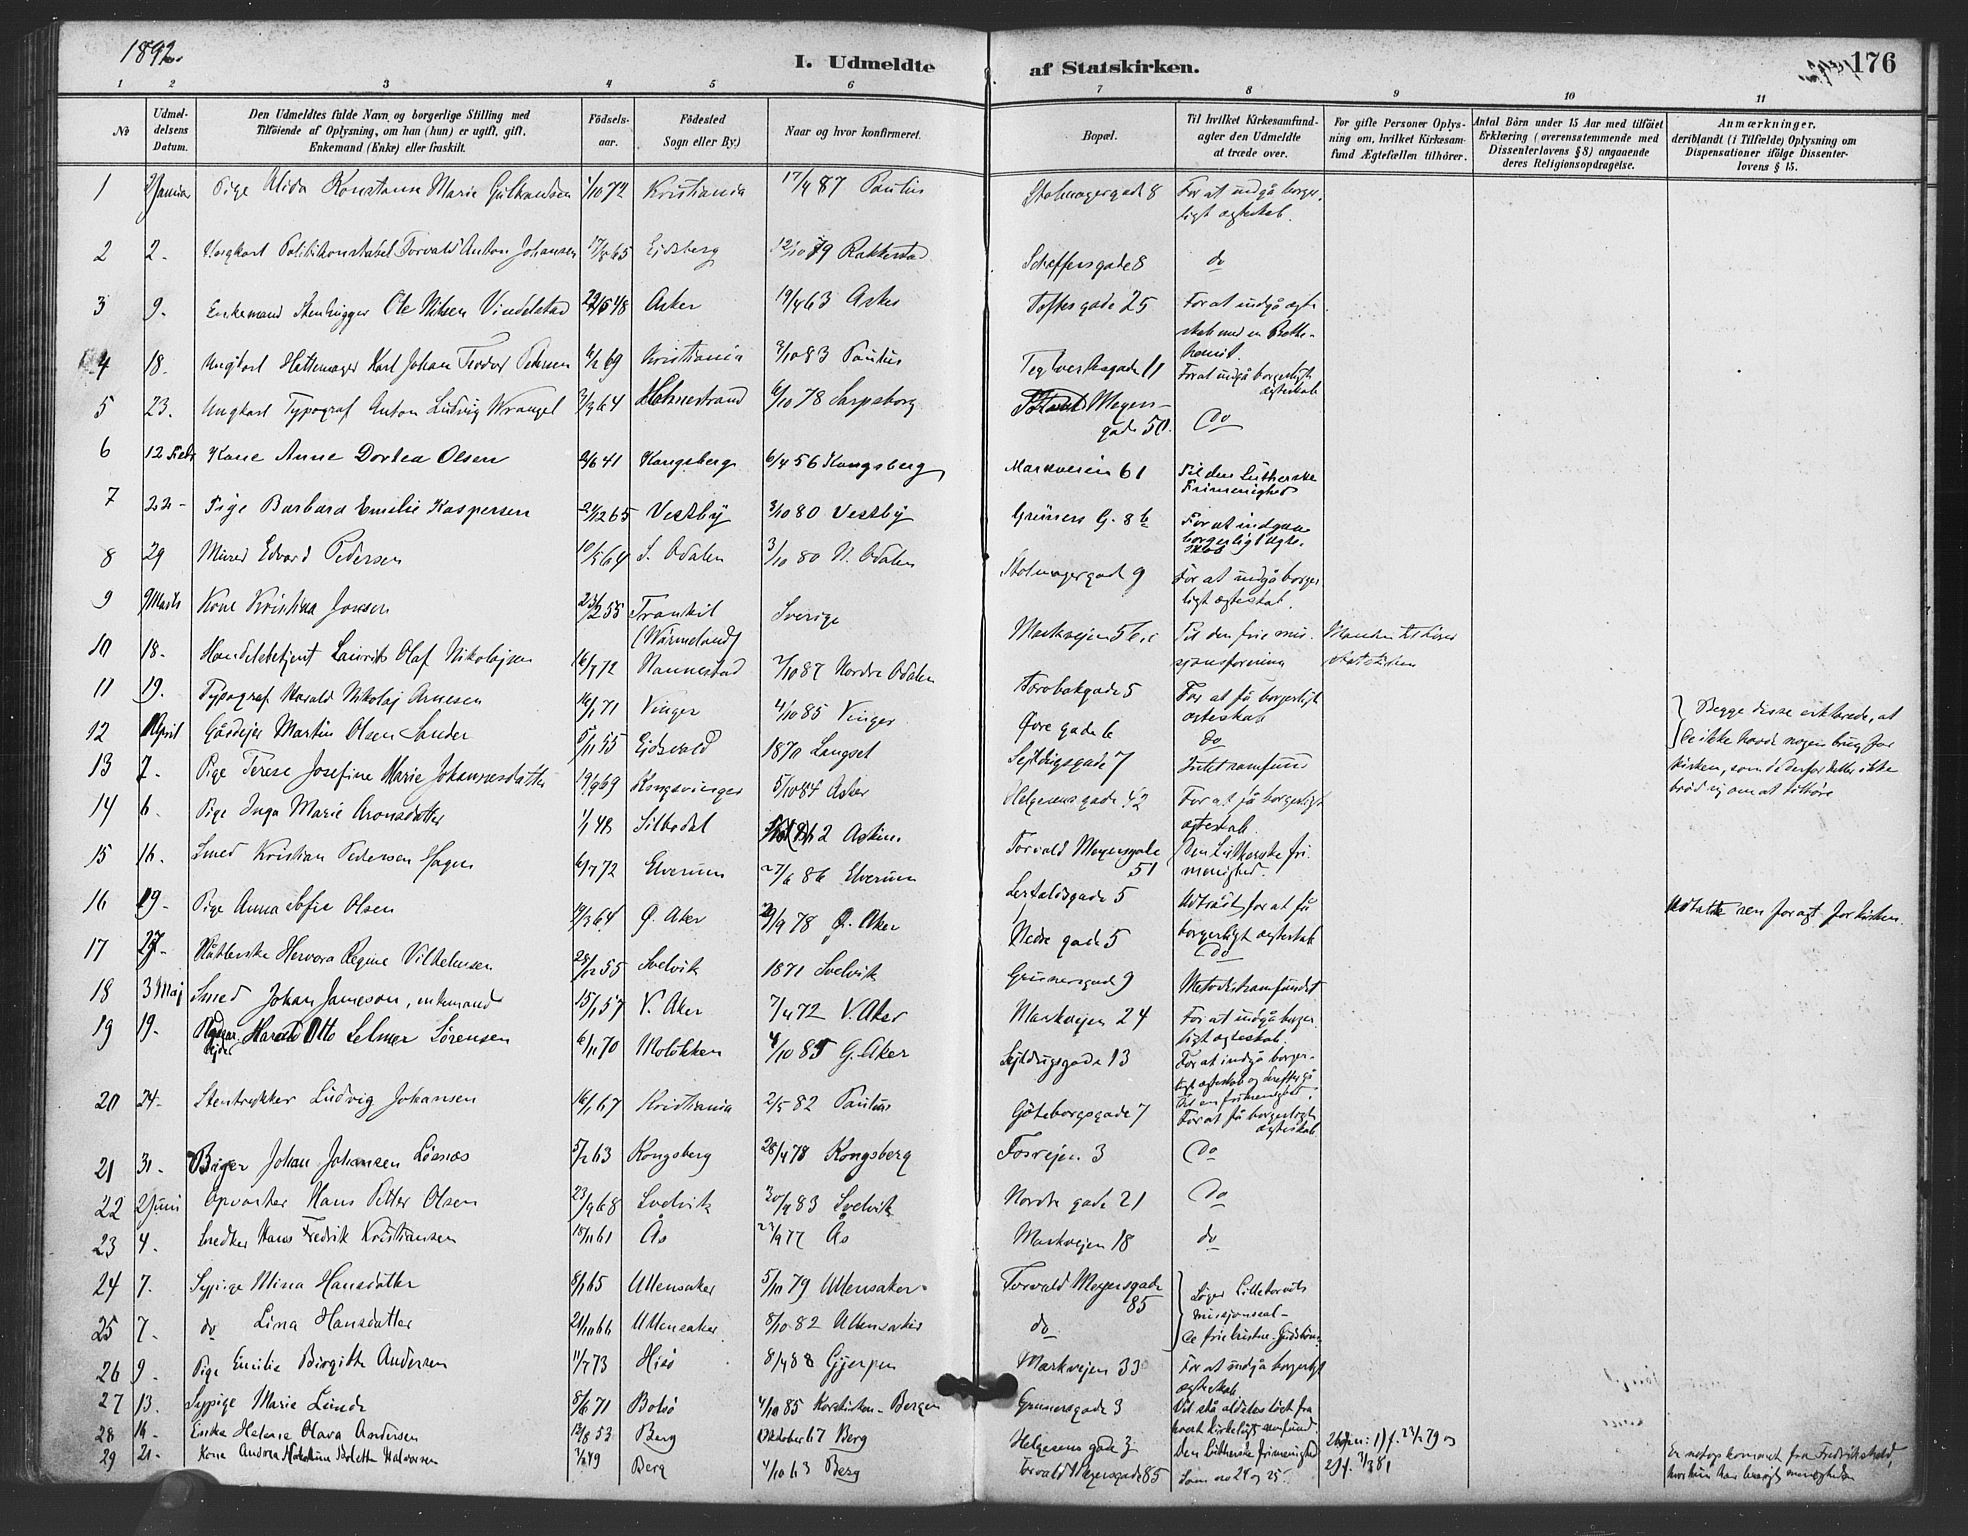 1892.
I. Udmeldte af Statskirken.
176
1 2 3 4 5 6 7 8 9 10 11
No
Udmeldelsens Datum.
Den Udmeldtes fulde Navn og borgerlige Stilling med
Tilføiende af Oplysning, om han (hun) er ugift, gift,
Enkemand (Enke) eller fraskilt.
Fødselsaar.
Fødested
Sogn eller By.)
Naar og hvor konfirmeret.
Bopæl.
Til hvilket Kirkesamfund agter den Udmeldte at træde over.
For gifte Personer Oplysning om, hvilket Kirkesamfund Ægtefællen tilhører.
Antal Børn under 15 Aar med tilføiet
Erklæring (overensstemmende med
Dissenterlovens § 8) angaaende
deres Religionsopdragelse.
Anmærkninger,
deriblandt (i Tilfælde) Oplysning om
Dispensationer ifølge Dissenterlovens § 15.
1 2 Januar Pige Alida Konstanse Marie Gulbrandsen 1/10 72 Kristiania 17/4 87 Paulus Skolmagergade 8 For at indgå borgerligt ægteskab.
2 2. Ungkarl Politikonstabel Torvald Anton Johansen 17/8 65 Eidsberg 12/10 79 Rakkestad Scheffersgade 8 do
3 9. Enkemand Stenhugger Ole Nilsen Vindelstad 48 Asker 19/4 63 Asker Toftesgade 25 For at indgå ægteskab med en
4 18. Ungkarl Hattemager Karl Johan Teodor Petersen 69 Kristiania 7/10 83 Paulus Teglverksgade 11 For at indgå borgerligt ægteskab
5 23. Ungkarl Typograf Anton Ludvig Wrangel 3/9 64 Holmestrand 6/10 78 Sarpsborg Meyersgade 50. Do
6 12 Febr Kone Anne Dortea Olsen 2/6 41 Kongsberg 6/4 56 Kongsberg Markveien 61 Til den Lutherske Frimenighed
7 22 - Pige Barbara Emilie Kaspersen 65 Vestby 3/10 80 Vestby Grüners G. 8 b For at indgaa borgerligt ægteskab
8 29 Murer Edvard Pedersen 10/5 64 S. Odalen 3/10 80 N. Odalen Skolmagergade 9 For at indgå borgerligt ægteskab.
9 9 Marts Kone Kristina Jonsen 55 Trankil (Wärmeland) Sverige Markvejen 56 Til den frie misjonsforening Manden tilhører statskirken
10 18. Handelsbetjent Laurits Olaf Nikolajsen 16/7 72 Nannestad 2/10 87 Nordre Odalen Torvbakgade 5 For at få borgerligt ægteskab
11 19. Typograf Harald Nikolaj Arnesen 71 Vinger 4/10 85 Vinger Øvre gade 6 do
12 April Gårdejer Martin Olsen Sander 55 Eidsvold 1870 Langset Sejldugsgade 7 Intet samfund
Begge disse erklærede, at
de ikke havde nogen brug for
kirken, som de derfor heller ikke
brød sig om at tilhøre
13 7. Pige Terese Josefine Marie Johannesdatter 19/9 69 Kongsvinger 5/10 84 Asker Helgesens gade 42 For at få borgerligt ægteskab.
14 6. Pige Inga Marie Aronsdatter 1/1 48 Silbodal 62 Askim Torvald Meyersgade 51 Den Lutherske frimenighed.
15 16. Smed Kristian Pedersen Hagen 6/7 72 Elverum 27/6 86 Elverum 5 Udtrådt for at få borgerligt ægteskab
16 29 - Pige Anna Sofie Olsen 64 Ø. Aker 29/9 78 Ø. Aker Nedre gade 5 Do
Udtalte ren foragt for kirken.
17 27. Hervora Regine Vilhelmsen 55 Svelvik 1871 Svelvik Grünersgad 9 Metodistsamfundet
18 3 Maj Smed Johan Jameson, enkemand 15/1 57 V. Aker 7/4 72 V. Aker Markvejen 24 For at indgå borgerligt ægteskab.
19 19. Harald Otto Selmer Sørensen 6/11 70 Moløkken 4/10 85 G. Aker Sejldugsgade 13 For at indgå borgerligt ægteskab og derefter gå til en frimenighed.
20 24 - Stentrykker Ludvig Johansen 16/1 67 Kristiania 2/5 82 Paulus Göteborgsgade 7 For at få borgerligt ægteskab
21 31 - Johan Johansen Løsnæs 5/2 63 Kongsberg 28/4 78 Kongsberg Fosvejen 3 Do
22 2 Juni Opvarter Hans Petter Olsen 23/9 68 Svelvik 30/9 83 Svelvik Nordre gade 21 Do
23 4. Snedker Hans Fredrik Kristiansen 18/11 61 Ås 23/9 77 Ås Markvejen 18 do
24 7. Sypige Mina Hansdatter 8/1 65 Ullensaker 5/10 79 Ullensaker Torvald Meyersgade 85
25 7. do Lina Hansdatter 21/10 66 Ullensaker 8/10 82 Ullensaker do.
26 9. Pige Emilie Birgitte Andersen 11/7 73 Hisø 8/4 88 Gjerpen Markvejen 33 For at indgå borgerligt ægteskab
27 13. Sypige Marie Lunde 8/6 71 Bolsø 4/10 85 Korskirken - Bergen Grünersgade 3 Vil stå aldeles løst fra hvert kirkeligt samfund.
28 16 - Enke Helene Olava Andersen 12/8 53 Berg Oktober 67 Berg Helgesens gade 3 Den lutherske frimenighed
29 21 - Kone Andrea Boletta Halvorsen 49 Berg 4/10 63 Berg Torvald Meyersgade 85 Som no 24 og 25.
Er netop kommet fra Fredrikshald,